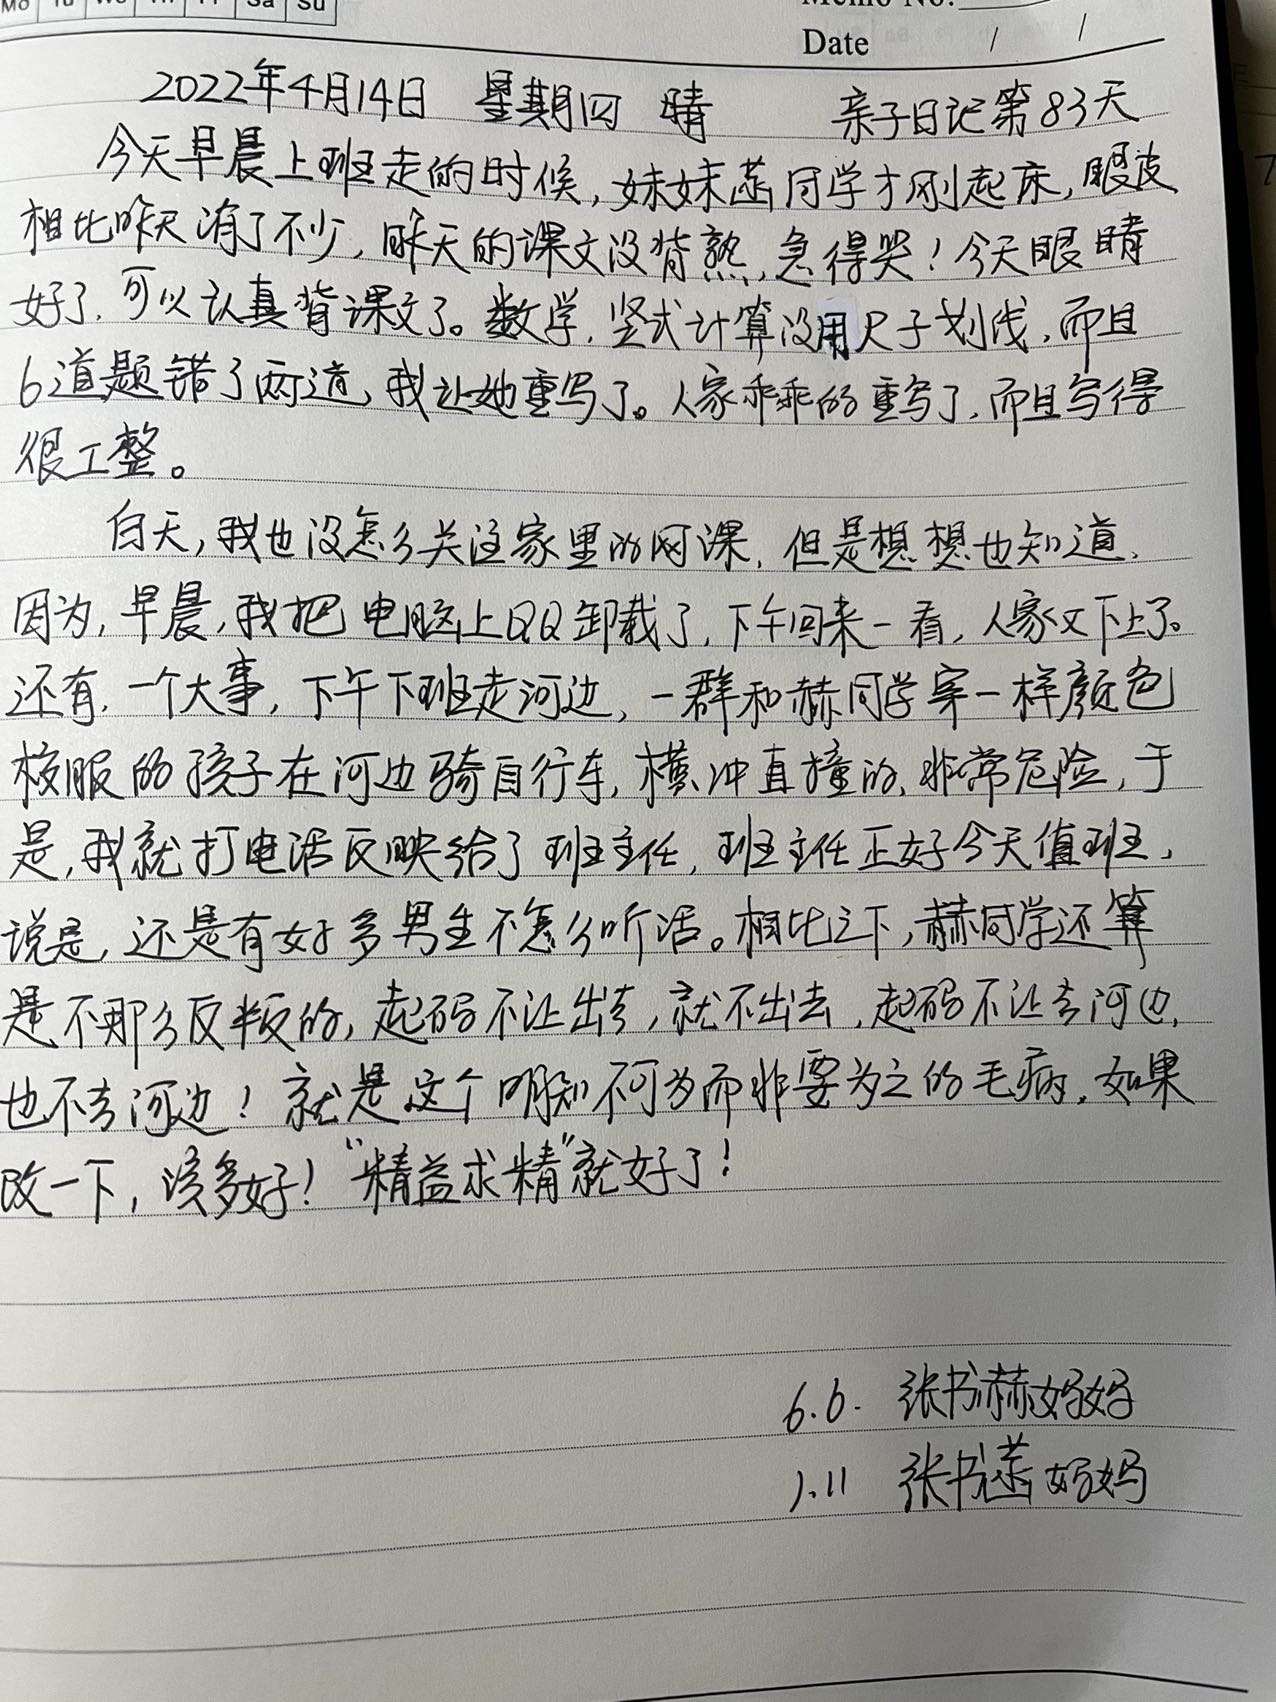 Mo Tu We Th Fr Sa Su
Memo No.
Date / /
2022年4月14日 星期四 晴 亲子日记第83天
今天早晨上班走的时候,妹妹菡同学才刚起床,眼皮
相比昨天消了不少,昨天的课文没背熟,急得哭!今天眼睛
好了,可以认真背课文了。数学,竖式计算没用尺子划线,而且
6道题错了两道,我让她重写了。人家乖乖的重写了,而且写得
很工整。
白天,我也没怎么关注家里的网课,但是想想也知道,
因为,早晨,我把电脑上QQ卸载了,下午回来一看,人家又下上了。
还有,一个大事,下午下班走河边,一群和赫同学穿一样颜色
校服的孩子在河边骑自行车,横冲直撞的,非常危险,于
是,我就打电话反映给了班主任,班主任正好今天值班,
说是,还是有好多男生不怎么听话。相比之下,赫同学还算
是不那么反叛的,起码不让出去,就不出去,起码不让去河边,
也不去河边!就是这个明知不可为而非要为之的毛病,如果
改一下,该多好!“精益求精”就好了!
6.6. 张书赫妈妈
1.11 张书菡妈妈